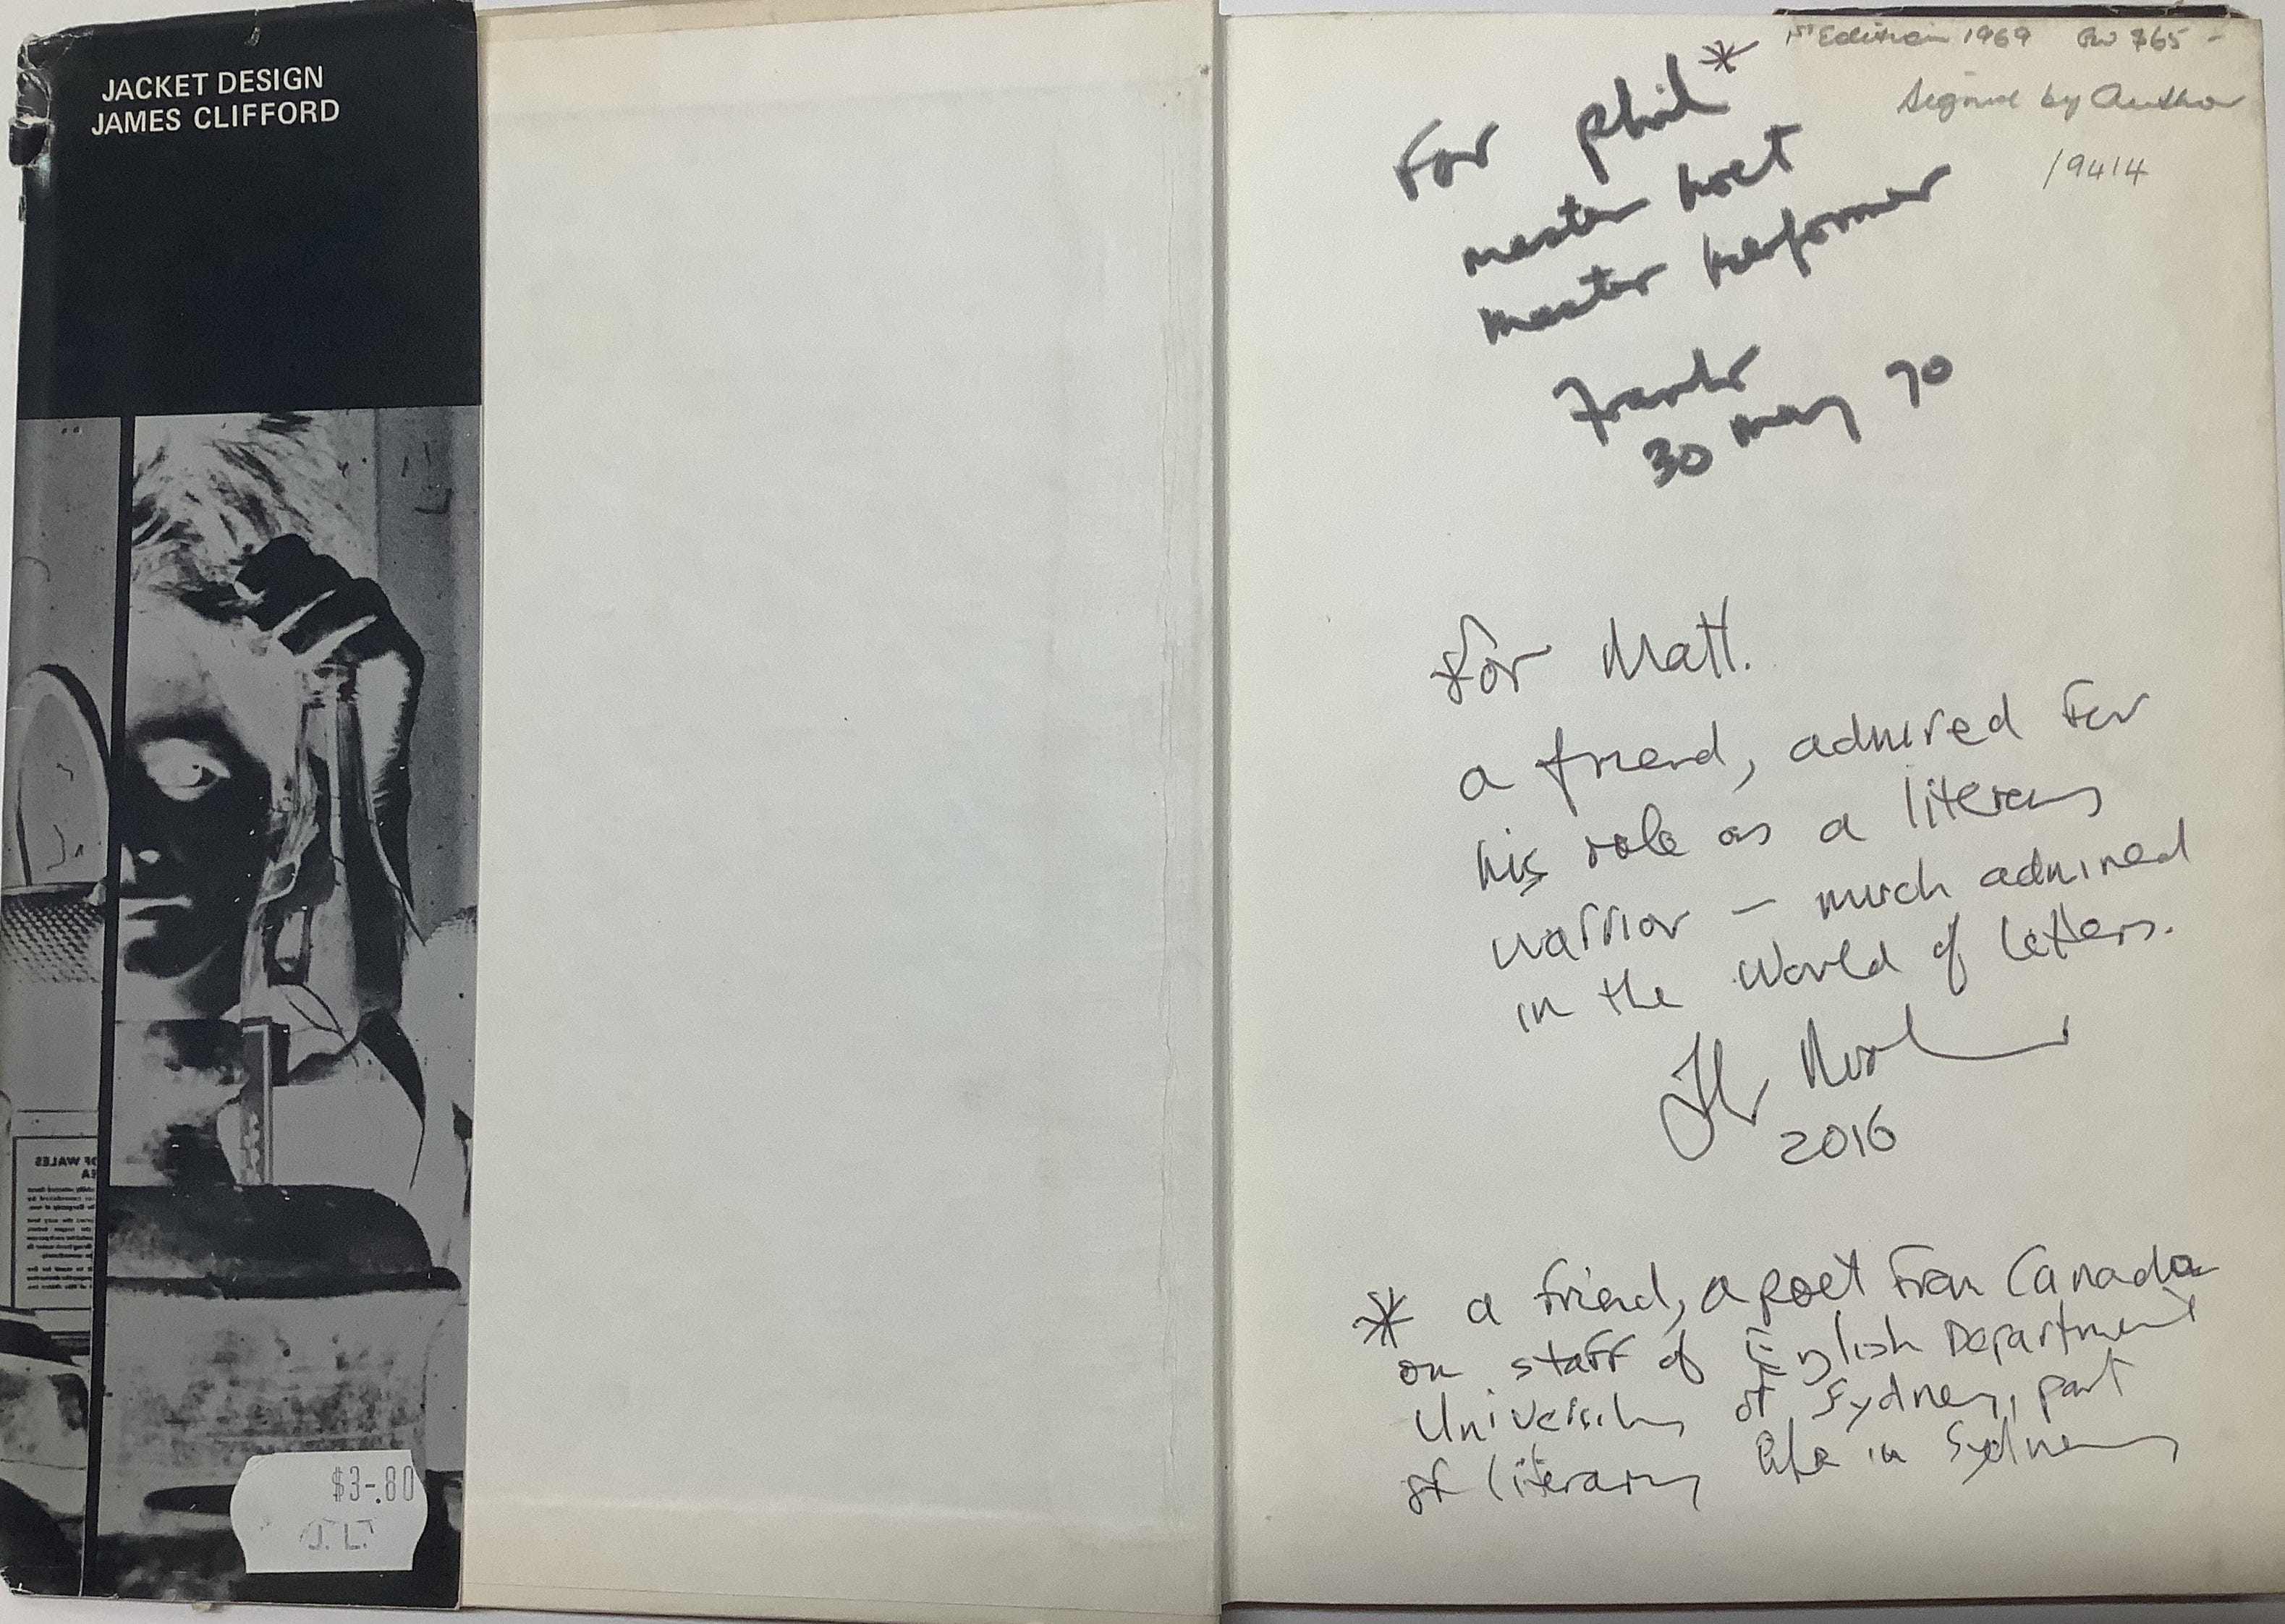 JACKET DESIGN
JAMES CLIFFORD
OF WALES
$3-.80
J. L.
1st Edition 1969
Signed by Author
19414
For Phil*
master poet
master performer
Frank
30 may 70
For Matt.
a friend, admired for
his role as a literary
warrior – much admired
in the world of letters.
2016
* a friend, a poet from Canada
on staff of English Department
University of Sydney, part
of literary life in Sydney